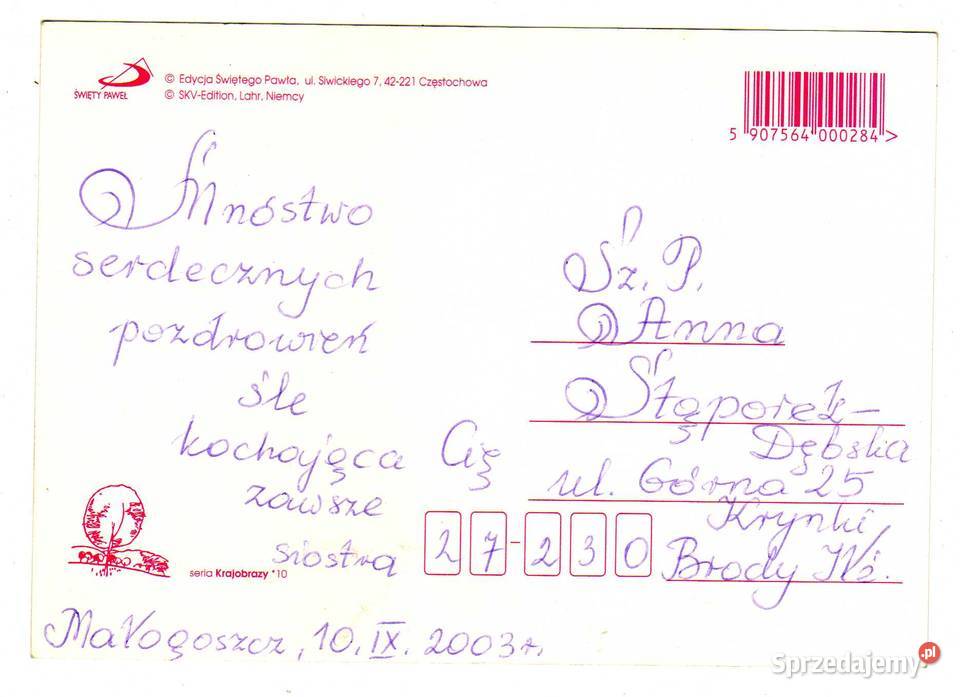 ŚWIĘTY PAWEŁ
© Edycja Świętego Pawła, ul. Siwickiego 7, 42-221 Częstochowa
© SKV-Edition, Lahr, Niemcy
5 907564 000284 >
Mnóstwo
serdecznych
pozdrowień
śle
kochająca Cię
zawsze
siostra
Sz. P.
Anna
Stąporek-
Dębska
ul. Górna 25
Krynki
27-230
Brody Iłż.
seria Krajobrazy *10
Małogoszcz, 10.IX. 2003 r.
Sprzedajemy.pl